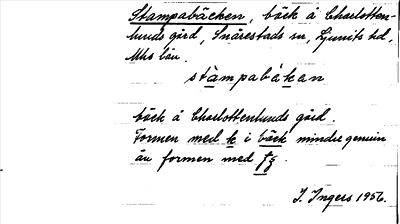 Stampabäcken, bäck å Charlotten-
lunds gård, Snårestads sn, Ljunits hd,
Mhs län.
stampabäkan
bäck å Charlottenlunds gård.
Formen med k i bäck mindre genuin
än formen med
I. Ingers 1956.